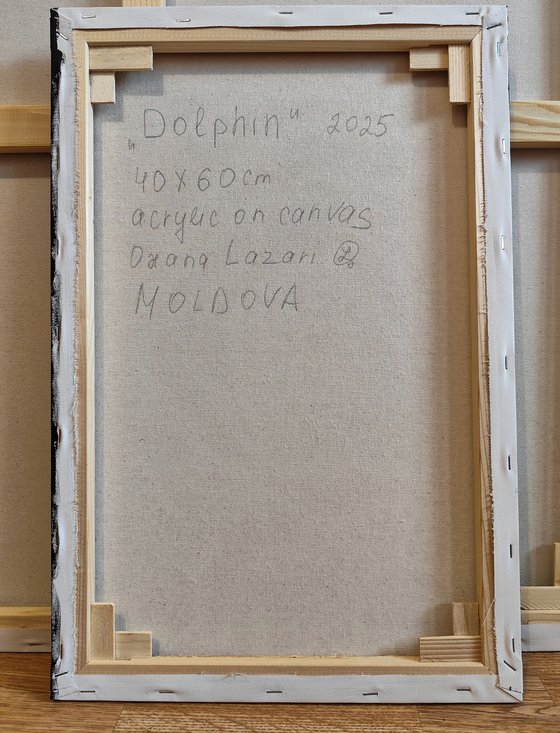 „Dolphin" 2025
40X60cm
acrylic on canvas
Oxana Lazari
MOLDOVA